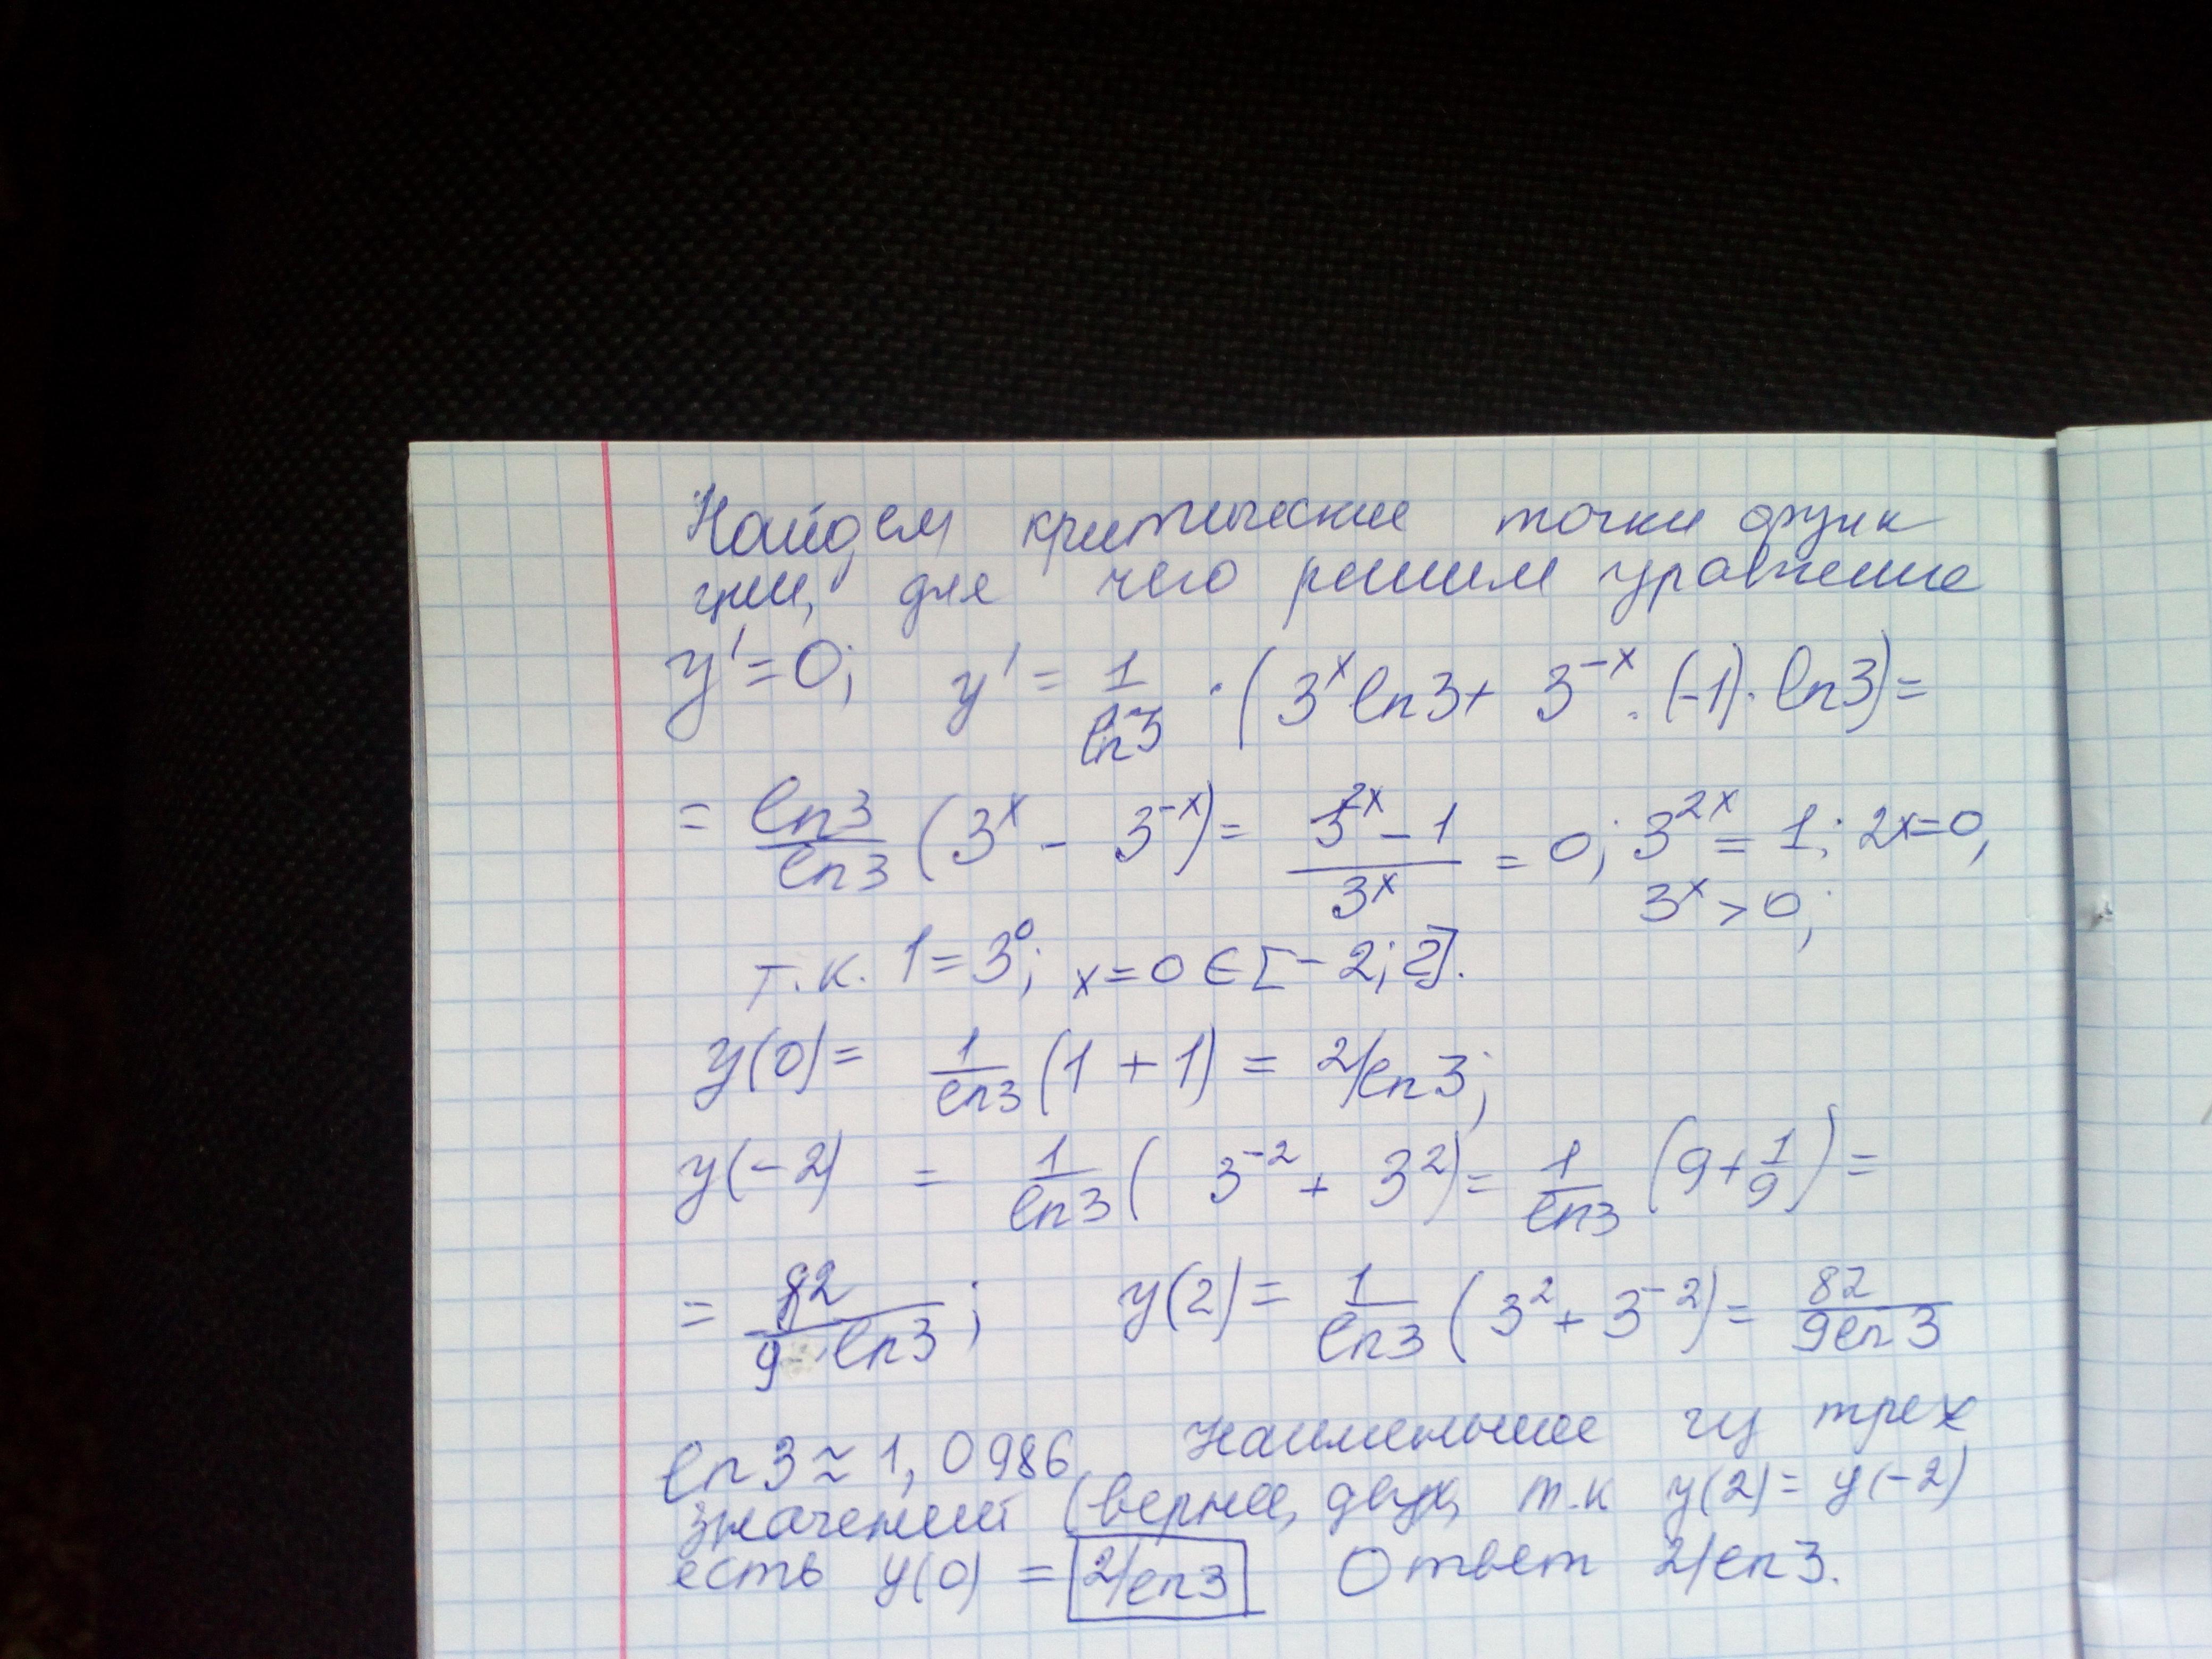 Найдем критические точки функ
ции, для чего решим уравнение
y' = 0; y' = 1/ln3 · (3^x ln3 + 3^-x · (-1) · ln3) =
= ln3/ln3 (3^x - 3^-x) = (3^2x - 1)/3^x = 0; 3^2x = 1; 2x=0,
3^x > 0;
т.к. 1 = 3^0; x=0 ∈ [-2; 2].
y(0) = 1/ln3 (1 + 1) = 2/ln3;
y(-2) = 1/ln3 (3^-2 + 3^2) = 1/ln3 (9 + 1/9) =
= 82/(9 ln3); y(2) = 1/ln3 (3^2 + 3^-2) = 82/(9ln3)
ln3 ≈ 1,0986 Наименьшее из трех
значений (вернее, двух, т.к y(2) = y(-2)
есть y(0) = 2/ln3 Ответ 2/ln3.